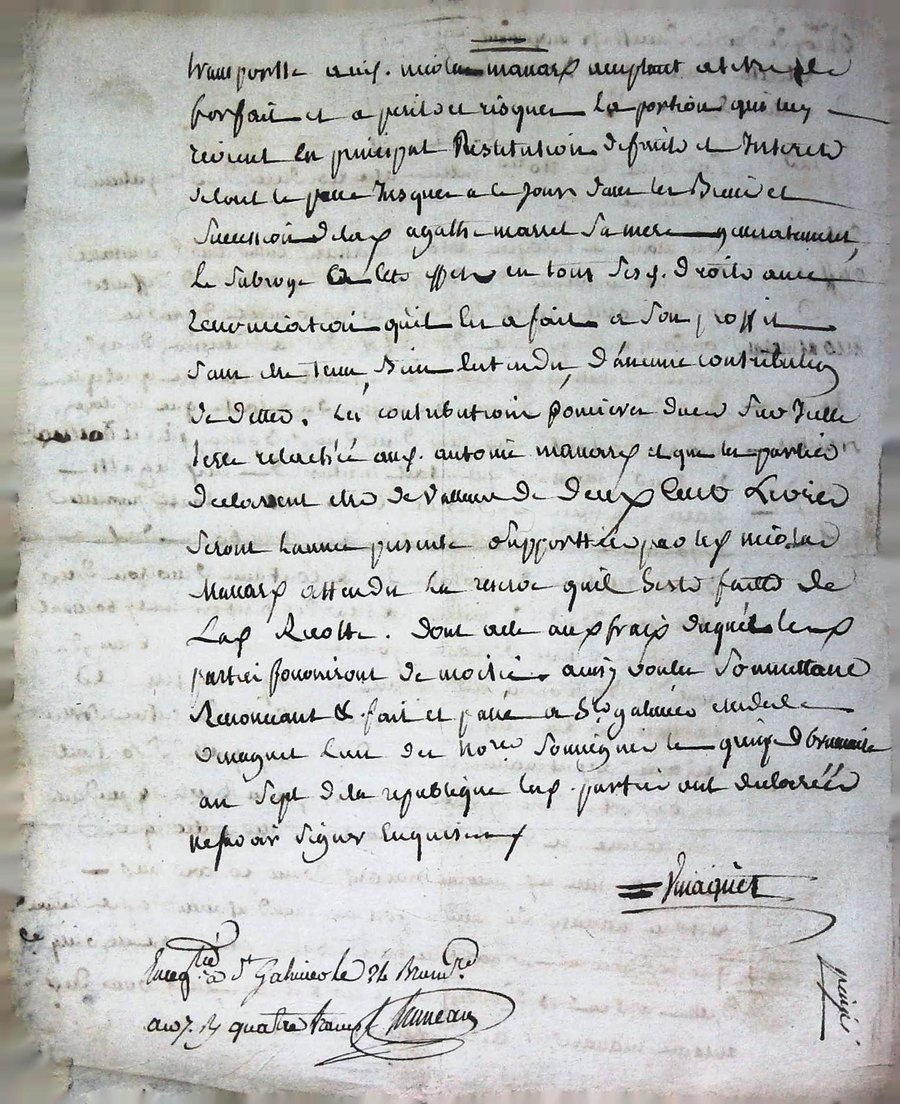 transportte aud. nicolas manarp acceptant a titre de
forfait et a peril et risques la portion qui luy
revient en principal Restitution de fruits et Interets
selont le passé Jusques a ce Jour dans les Biens et
succession de lap agathe marret sa mere generalement,
le subroge a cets effets en tous ses d. droits avec
renonciation quil en a fait a son proffit
sans etre tenu, Bien entendu, d'aucune contribution
de dettes. les contributions foncieres dues sur
relachée aup. antoine manarp et que les parties
declarent etre de valleur de deux cents Livres
seront l'année presente supporttées par lep nicolas
Manarp attendu la reserve quil sest faitte de
Lap Recolte. dont acte aux frais duquel les p
parties fourniront de moitié. ainsy voulu soumettant
Renoncant & fait et passé a St galmier etude de
vmagnet l'un des Nores soussignes le quinze Brumaire
an sept de la republique les p. parties ont declarées
ne savoir signer Enquises
Vmagnet
Enregtré a St Galmier le 24 Brumre
an 7. R quatre francs